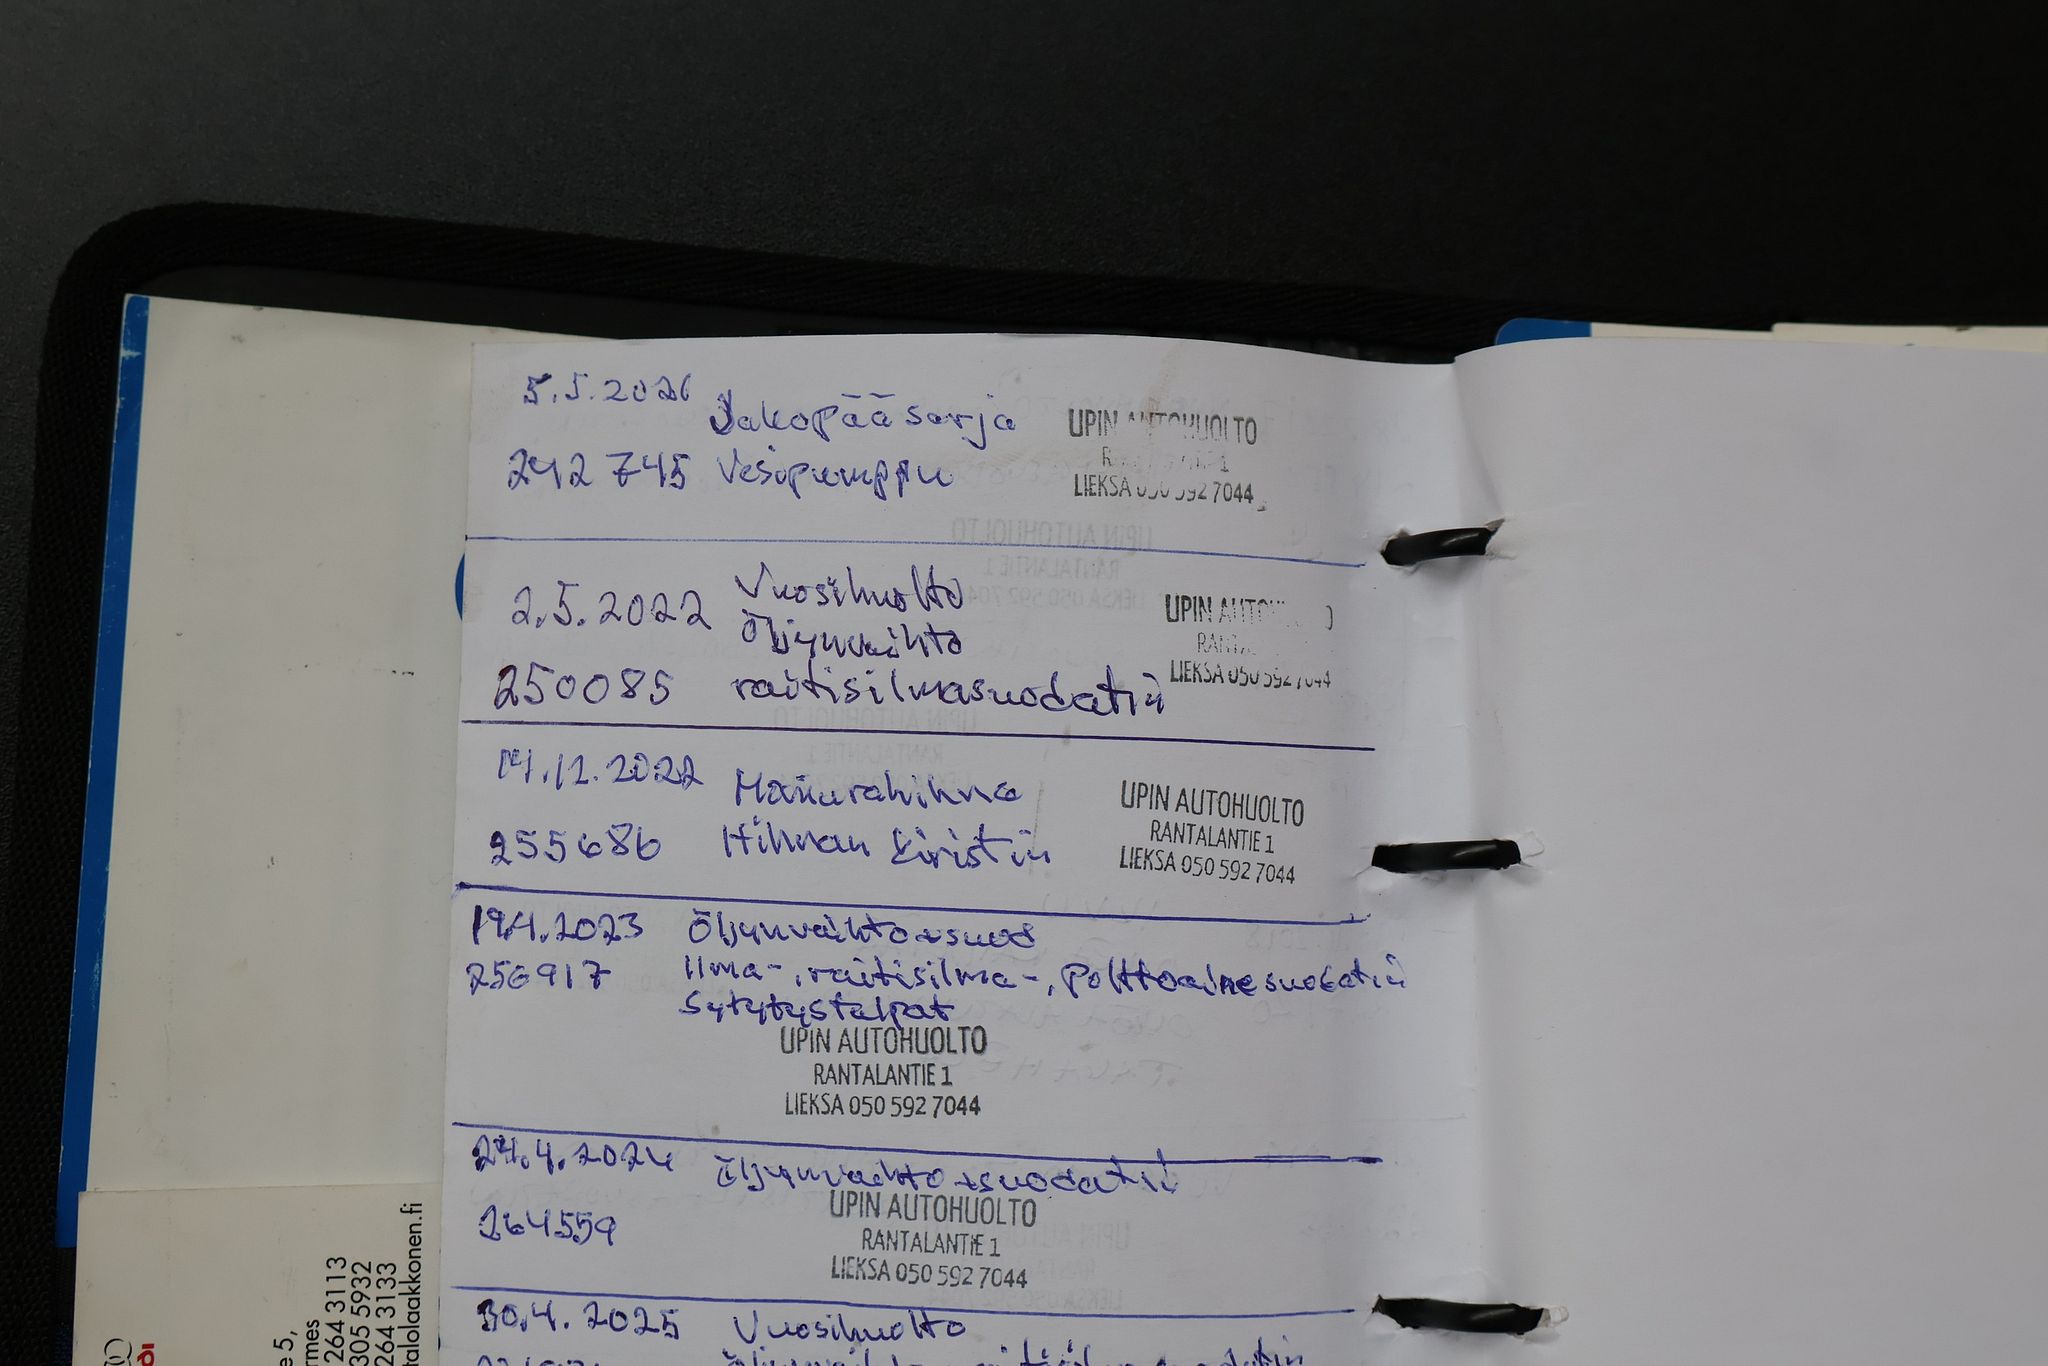 5.5.2020 Jakopääsarja
242 745 Vesipumppu
UPIN AUTOHUOLTO
LIEKSA 050 592 7044
2.5.2022 Vuosihuolto
Öljynvaihto
250085 raitisilmasuodatin
UPIN
LIEKSA 050 592 7044
14.12.2022
255686 Hihnan kiristin
UPIN AUTOHUOLTO
RANTALANTIE 1
LIEKSA 050 592 7044
19.4.2023 Öljynvaihto+suod
256917 Ilma-, raitisilma-, Polttoainesuodatin
Sytytystulpat
UPIN AUTOHUOLTO
RANTALANTIE 1
LIEKSA 050 592 7044
24.4.2024 öljynvaihto+suodatin
264559
UPIN AUTOHUOLTO
RANTALANTIE 1
LIEKSA 050 592 7044
30.4.2025 Vuosihuolto
e 5,
rmes
264 3113
305 5932
264 3133
talolaakkonen.fi